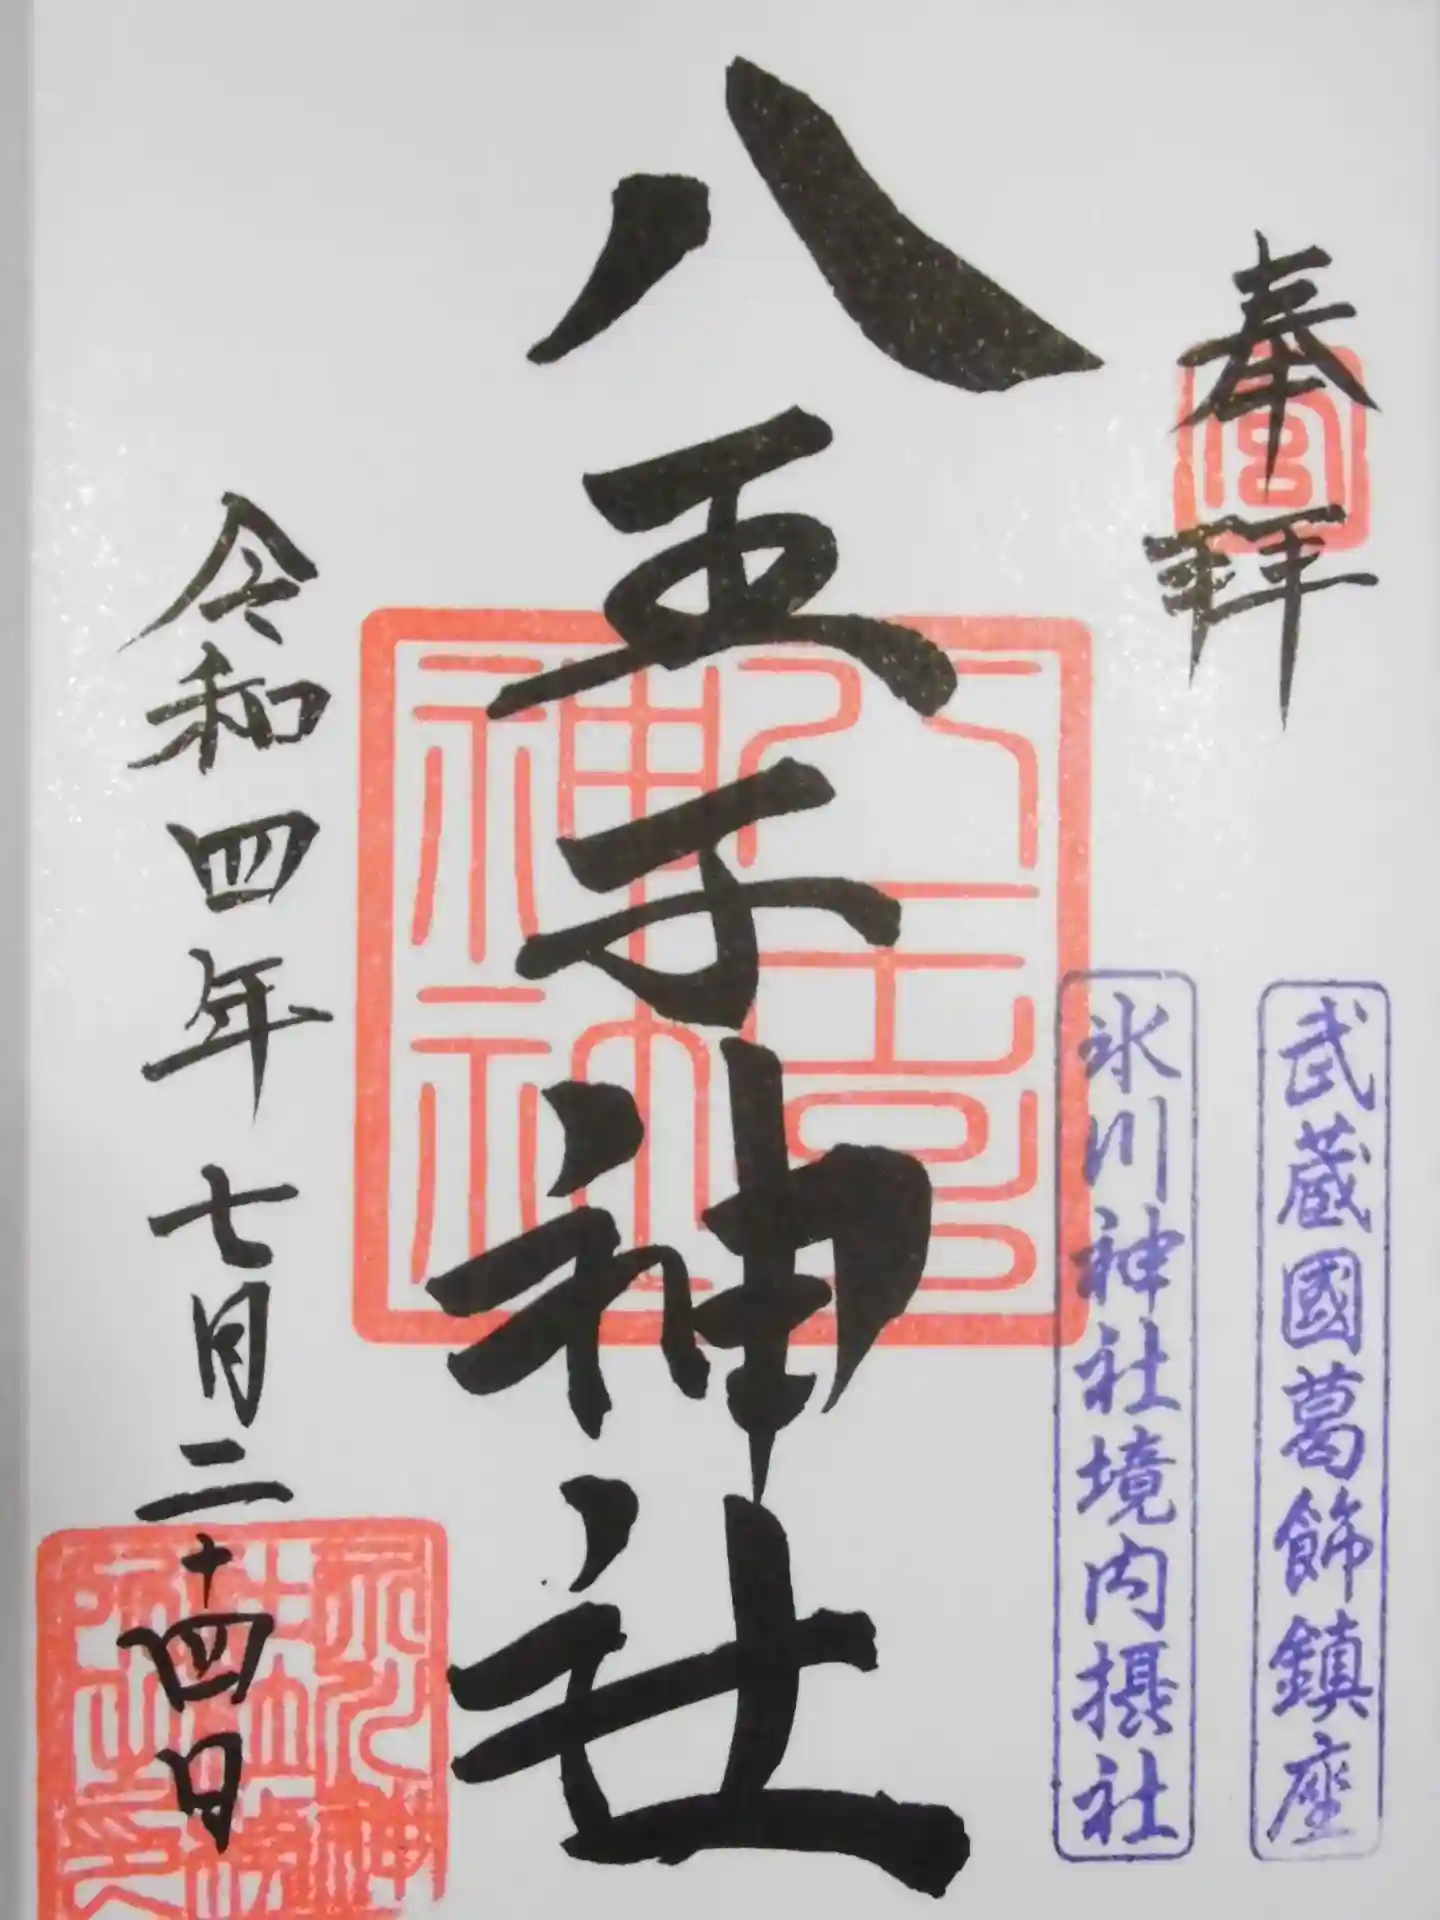 奉拝
武蔵國葛飾鎮座
氷川神社境内摂社
八王子神社
令和四年七月二十四日